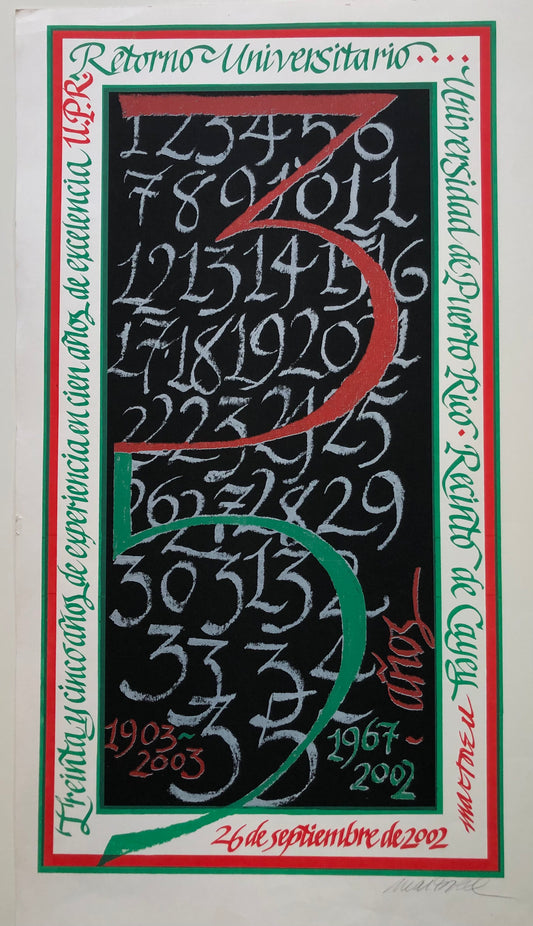 Treinta y cinco años de experiencia en cien años de excelencia U.P.R.
Retorno Universitario....
Universidad de Puerto Rico · Recinto de Cayey
1 2 3 4 5 6
7 8 9 10 11
12 13 14 15 16
17 18 19 20 21
22 23 24 25
26 27 28 29
30 31 32
33 34
35
35
años
1903~
2003
1967-
2002
26 de septiembre de 2002